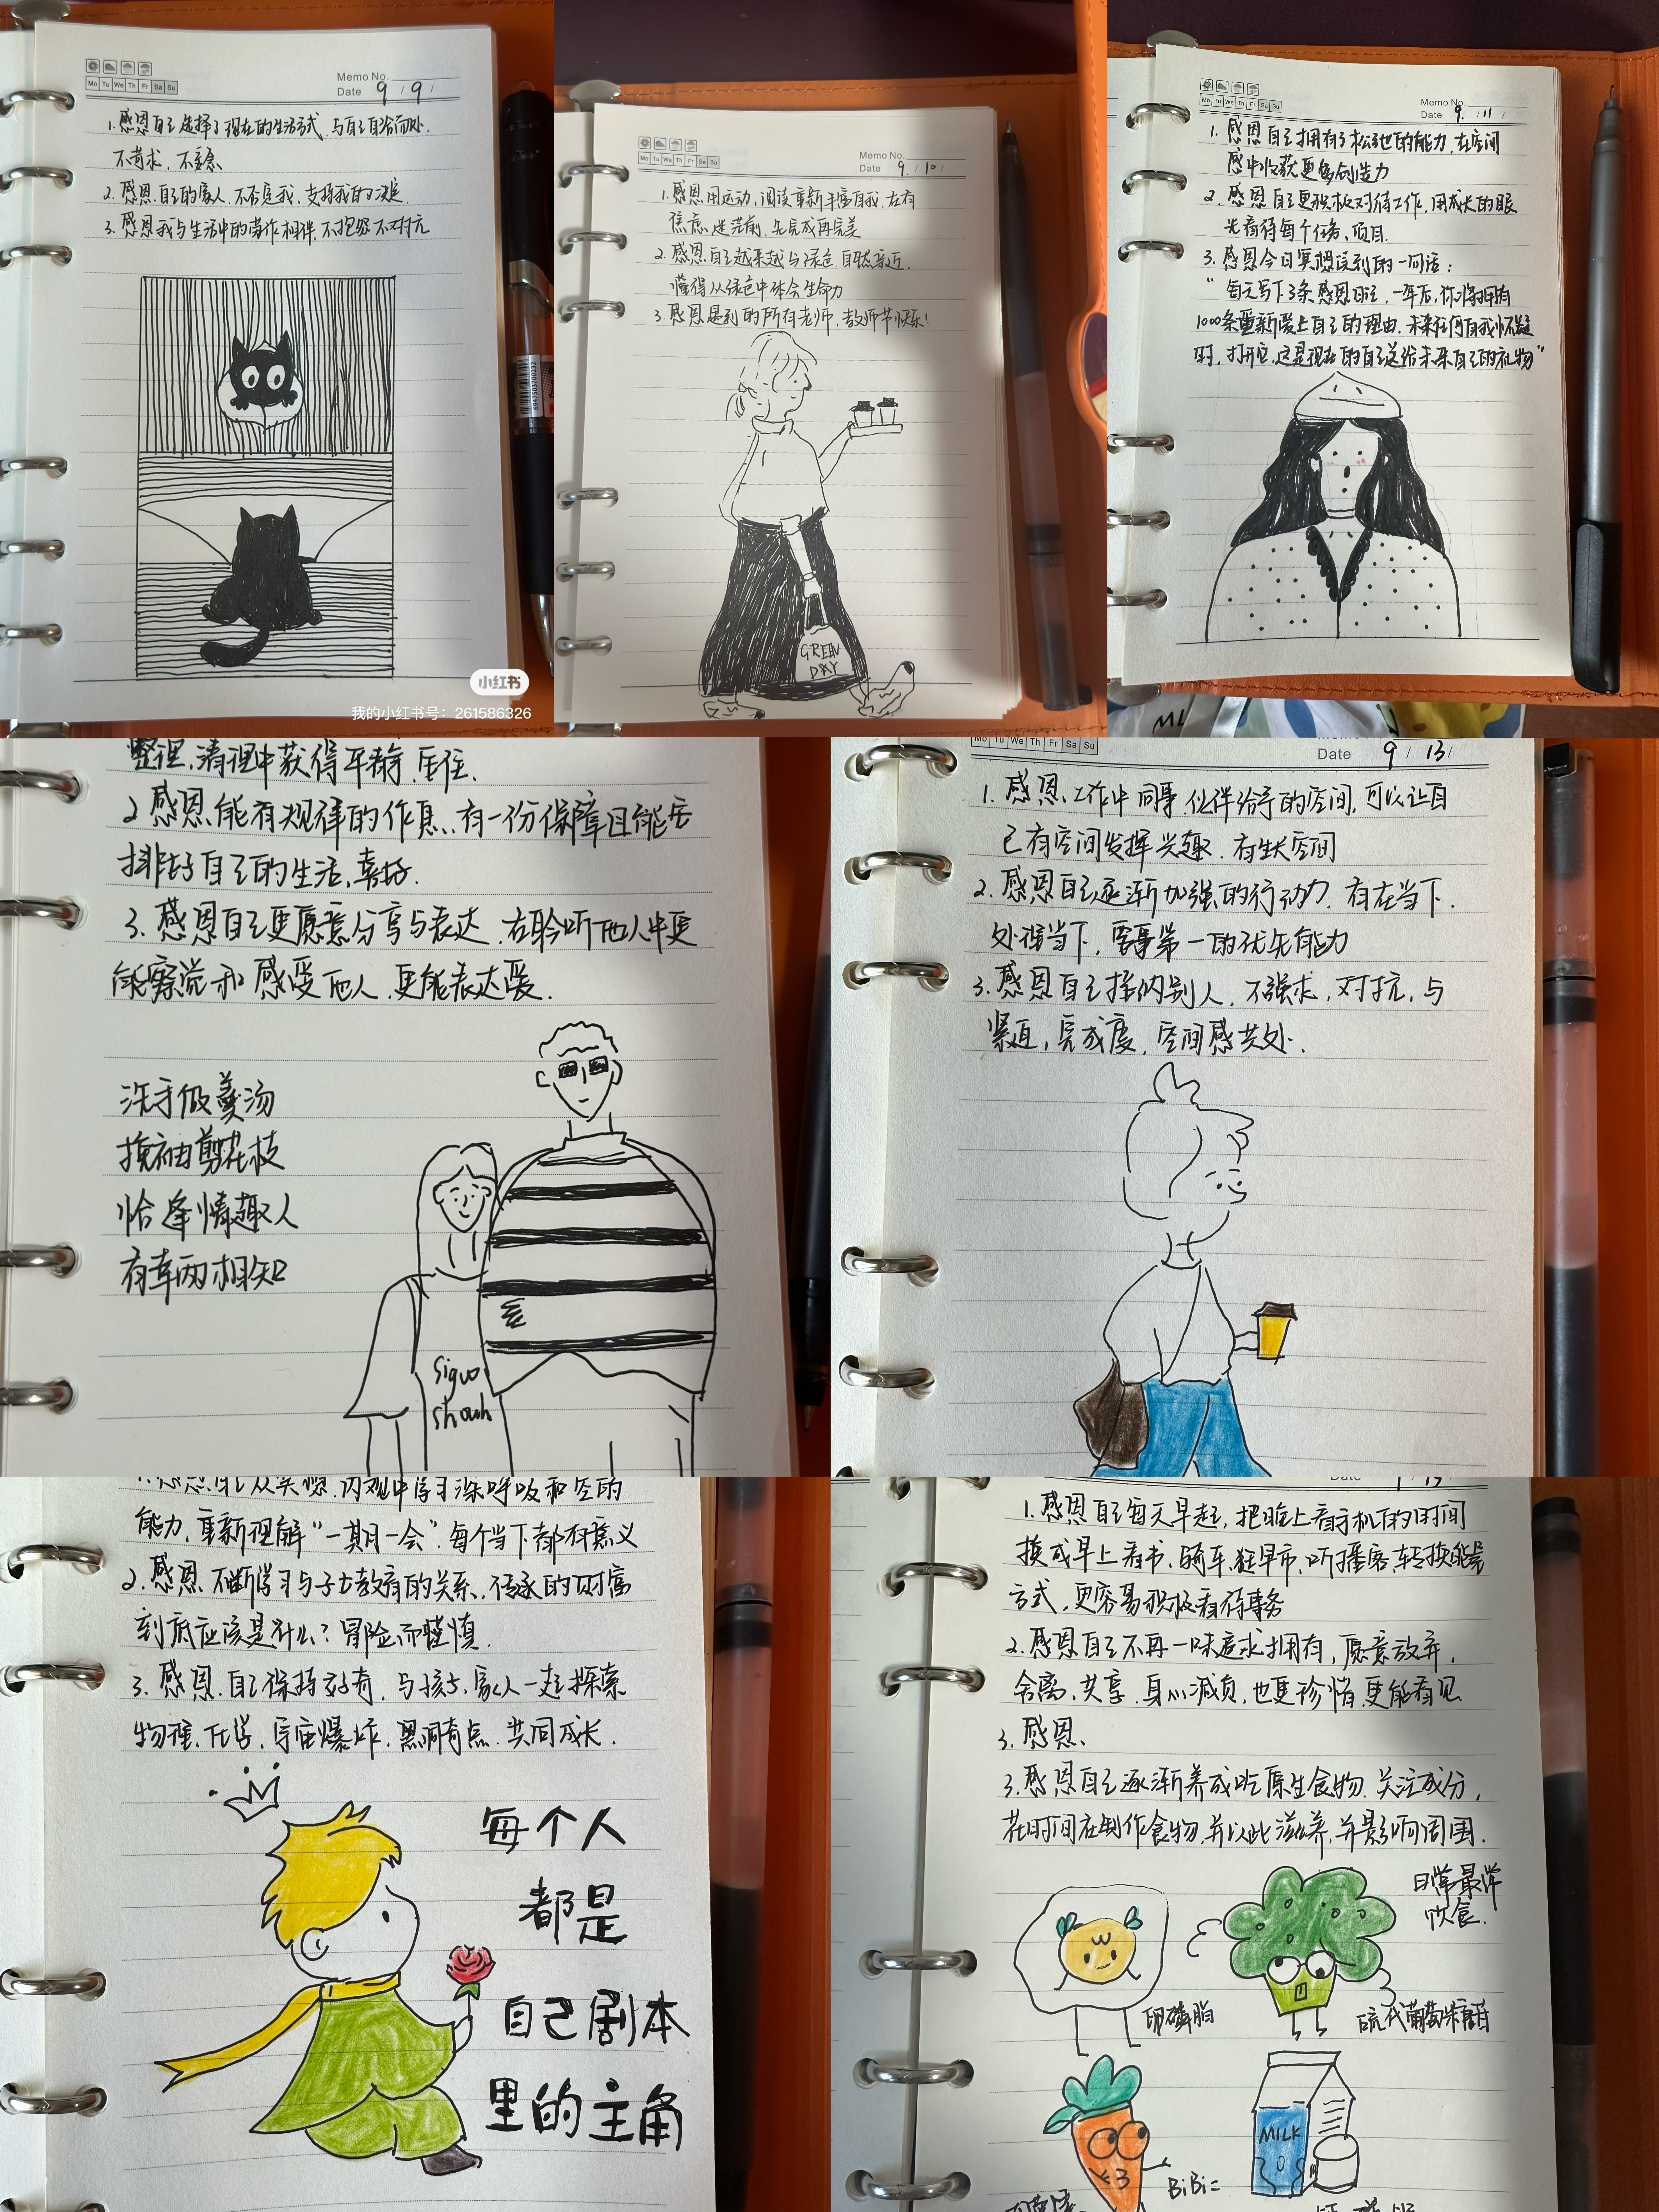 Memo No.
Mo Tu We Th Fr Sa Su
Date 9 / 9 /
1. 感恩自己选择了现在的生活方式、与自己自洽而处.
不苛求、不妄念
2. 感恩自己的家人、不否定我、支持我的决定
3. 感恩我与生活中的常作相伴、不抱怨不对抗
小红书
我的小红书号：261586326
Memo No.
Mo Tu We Th Fr Sa Su
Date 9 / 10 /
1. 感恩用运动、阅读重新丰盛自我、在有
焦虑、迷茫前、先完成再完美
2. 感恩自己越来越与绿色、自然亲近、
懂得从绿色中体会生命力
3. 感恩遇到的所有老师、教师节快乐!
GREEN
DAY
Memo No.
Mo Tu We Th Fr Sa Su
Date 9 / 11 /
1. 感恩自己拥有了松弛的能力、在空间
感中收获更多创造力
2. 感恩自己更积极对待工作、用成长的眼
光看待每个任务、项目.
3. 感恩今日冥想读到的一句话：
"每天写下3条感恩日记，一年后，你将拥有
1000条重新爱上自己的理由.未来任何自我怀疑
时，打开它，这是现在的自己送给未来自己的礼物"
整理、清理中获得平静、
2. 感恩能有规律的作息、有一份保障且能安
排好自己的生活、喜好.
3. 感恩自己更愿意分享与表达、在聆听他人中更
能察觉和感受他人、更能表达爱.
洗手做羹汤
挽袖剪花枝
恰逢情趣人
有幸两相知
Mo Tu We Th Fr Sa Su
Date 9 / 13 /
1. 感恩工作中同事、伙伴给予的空间，可以让自
己有空间发挥兴趣、有生长空间
2. 感恩自己逐渐加强的行动力、存在当下、
处理当下，要事第一的优先能力
3. 感恩自己接纳别人、不强求，对抗，与
紧迫，完成度、空间感共处.
1. 感恩自己从冥想、内观中学习深呼吸和空的
能力、重新理解"一期一会"每个当下都有意义
2. 感恩不断学习与子女教育的关系、传承的财富
到底应该是什么？冒险而谨慎.
3. 感恩自己保持好奇、与孩子、家人一起探索
物理、化学、宇宙爆炸、黑洞奇点、共同成长.
每个人
都是
自己剧本
里的主角
Date
1. 感恩自己每天早起，把晚上看手机的时间
换成早上看书、骑车、逛早市、听播客、转换能量
方式、更容易积极看待事务
2. 感恩自己不再一味追求拥有，愿意放弃、
舍离、共享、身心减负，也更珍惜、更能看见
3. 感恩、
3. 感恩自己逐渐养成吃原生食物、关注成分，
花时间在制作食物，并以此滋养，并影响周围.
饮食.
卵磷脂
硫代葡萄糖苷
MILK
BiBi